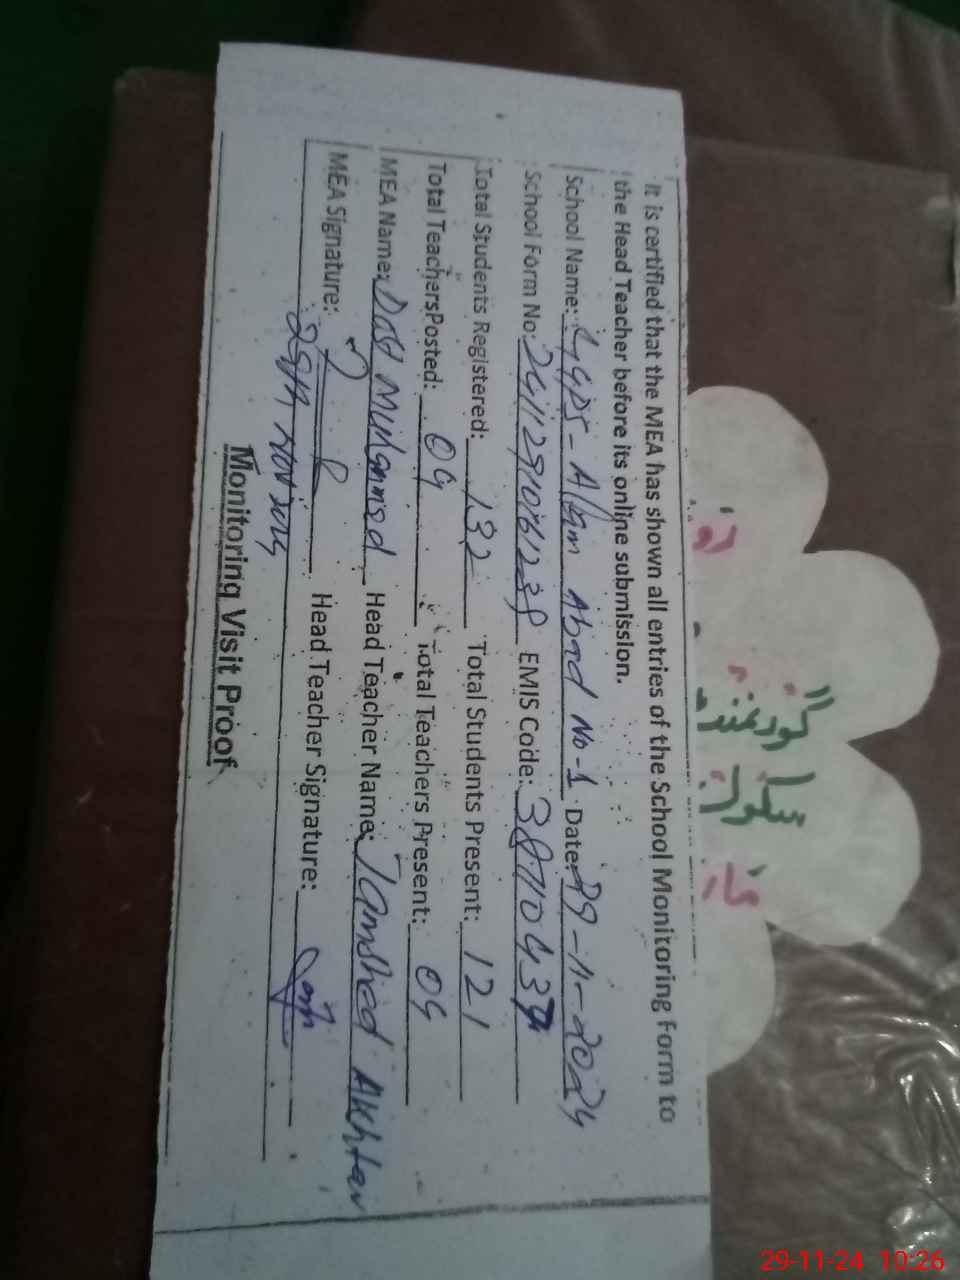 It is certified that the MEA has shown all entries of the School Monitoring Form to
the Head Teacher before its online submission.
School Name: GGPS-Alam Abad No-1 Date: 29-11-2024
School Form No: EMIS Code:
Total Students Registered: 132 Total Students Present: 121
Total Teachers Posted: 04 Total Teachers Present: 04
MEA Name: Dost Muhammad Head Teacher Name: Jamshed Akhtar
MEA Signature: Head Teacher Signature:
29th Nov 2024
Monitoring Visit Proof
29-11-24 10:26